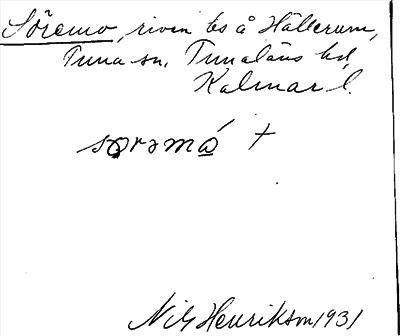 Söremo, riven bs å Hällerum,
Tuna sn, Tunaläns hd,
Kalmar l.
sɷrəmá +
Nils Henrikson 1931